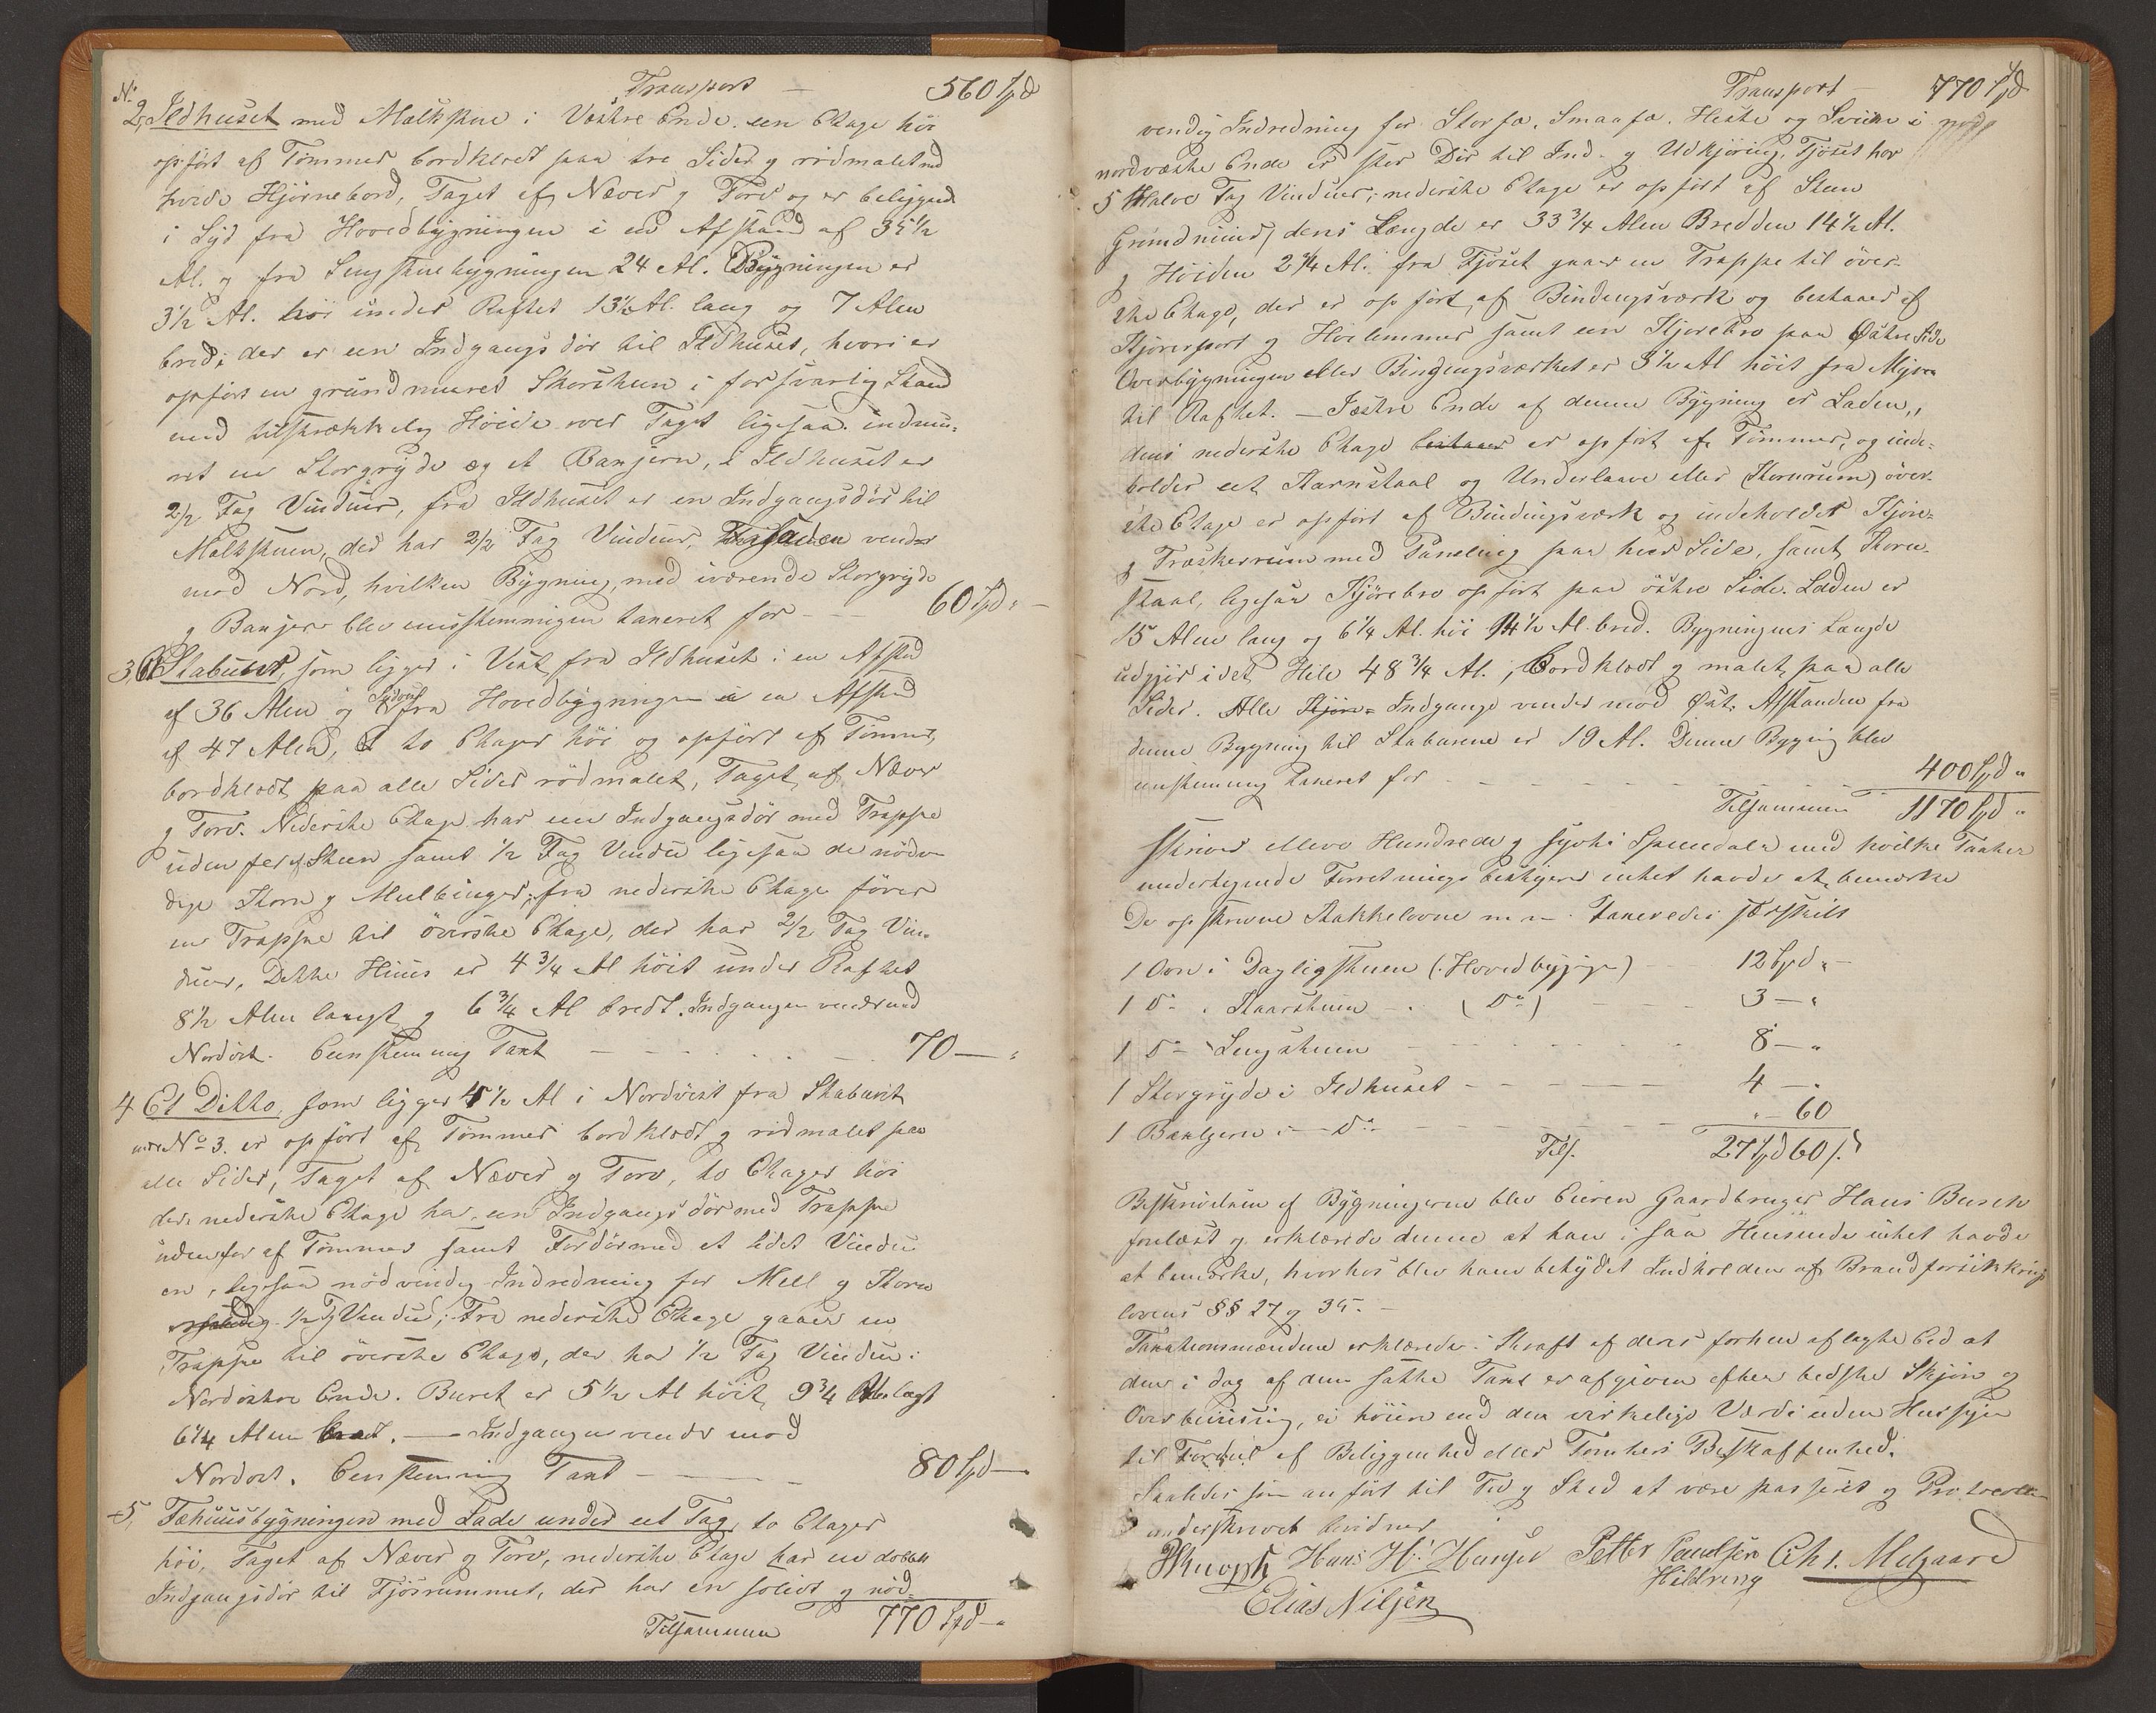 Transport — 560 Spd
No
2, Ildhuset med Mælkstue i Væstre Ende. een Etage høi
opført af Tømmer bordklædt paa tre Sider og rødmalet med
hvide Hjørnebord, Taget af Næver og Torv og er beliggende
i Syd fra Hovedbygningen i en Afstand af 35 1/2
Al. og fra Lengstuebygningen 24 Al. Bygningen er
3 1/2 Al. høi under Raftet 13 1/2 Al. lang og 7 Alen
bred; der er een Indgangsdør til Ildhuset, hvori er
opført en grundmuret Skorsteen i forsvarlig Stand
med tilstrækkelig Høide over Taget ligesaa indmu-
ret en Storgryde og et Banjern, i Ildhuset er
2/2 Fag Vinduer, fra Ildhuset er en Indgangsdør til
Mælkstuen, der har 2/2 Fag Vinduer, Fasaden vender
mod Nord, hvilken Bygning med iværende Storgryde
og Banjern blev eenstemmigen taxeret for — — 60 Spd „ —
3, Et Stabuur, som ligger i Vest fra Ildhuset i en Afstand
af 36 Alen og Sydvest fra Hovedbygningen i en Afstand
af 47 Alen, to Etager høi og opført af Tømmer,
bordklædt paa alle Sider rødmalet, Taget af Næver
og Torv. Nederste Etage har een Indgangsdør med Trappe
uden for af Steen samt 1/2 Fag Vindu ligesaa de nødven-
dige Korn og Meelbinger, fra nederste Etage fører
en Trappe til øverste Etage, der har 2/2 Fag Vin-
duer, Dette Huus er 4 3/4 Al høit under Raftet
8 1/2 Alen langt og 6 3/4 Al bredt. Indgangen vender mod
Nordøst. Eenstemmig Taxt — — — 70 — „
4 Et Ditto, som ligger 4 1/2 Al i Nordvest fra Staburet
under No 3. er opført af Tømmer bordklædt og rødmalet paa
alle Sider, Taget af Næver og Torv, to Etager høi
der nederste Etage har een Indgangsdør med Trappe
udenfor af Tømmer samt Fordør med et lidet Vindu
en, ligesaa nødvendig Indredning for Meel og Korn
1/2 Fag Vindu; Fra nederste Etage gaaer en
Trappe til øverste Etage, der har 1/2 Fag Vindu i
Nordøstre Ende. Buret er 5 1/2 Al høit, 9 3/4 Alen langt
6 1/4 Alen bredt. — Indgangen vender mod
Nordost. Eenstemmig Taxt — — — 80 Spd —
5, Fæhuusbygningen med Lade under eet Tag, to Etager
høi, Taget af Næver og Torv, nederste Etage har en dobbelt
Indgangsdør til Fjøsrummet, der har en solid og nød-
Tilsammen 770 Spd — „
Transport — 770 Spd
vendig Indredning for Storfæ, Smaafæ, Heste og Sviin i
nordvæste Ende er stor Dør til Ind- og Udkjøring, Fjøset har
5 Halve Fag Vinduer; nederste Etage er opført af Steen
Grundmuur, dens Længde er 33 3/4 Alen Bredden 14 1/2 Al.
og Høiden 2 1/4 Al. fra Fjøset gaaer en Trappe til øver-
ste Etage, der er opført af Bindingsværk og bestaaer af
Kjøreport og Høelemmer samt een Kjørebro paa Østre Side
Overbygningen eller Bindingsværket er 5 1/2 Al høit fra Mysen
til Raftet. — Søstre Ende af denne Bygning er Laden,
dens nederste Etage bestaaer er opført af Tømmer, og inde-
holder eet Kornstaal og Underlaave eller (Kornrum) øver-
ste Etage er opført af Bindingsværk og indeholder Kjøre-
og Træskerum med Paneling paa hver Side, samt Korn-
staal, ligesaa Kjørebro opført paa østre Side. Laden er
15 Alen lang og 6 1/4 Al. høi 14 1/2 Al. bred. Bygningens Længde
udgjør i det Hele 48 3/4 Al., Bordklædt og malet paa alle
Sider. Alle Kjøre- Indgange vender mod Øst. Afstanden fra
denne Bygning til Staburene er 19 Al. Denne Bygning blev
eenstemmig taxeret for — — — 400 Spd „
Tilsammen 1170 Spd „
skriver elleve Hundrede og sytti Speciedaler med hvilke Taxter
undertegnede Forretnings bestyrer intet havde at bemærke
De opskrevne Kakkelovne m. m. taxeredes særskilt
1 Ovn i Dagligstuen (Hovedbygningen) — 12 Spd „ —
1 Do i Kaarstuen — (Do) — — 3 — „
1 Do i Lengstuen — — — 8 — „
1 Storgryde i Ildhuset — — — 4 — „
1 Banjern i — Do — — — „ — 60
Tils. 27 Spd 60 s.
Beskrivelsen af Bygningerne blev Eieren Gaardbruger Hans Busch
forelæst og erklærede denne at han i saa Henseende intet havde
at bemærke, hvorhos blev ham betydet Indholden af Brandforsikkrings
lovens §§ 27 og 35. —
Taxationsmændene erklærede i Kraft af deres forhen aflagte Eed at
den i dag af dem satte Taxt er afgiven efter bedste Skjøn og
Overbeviisning, ei høiere end den virkelige Værdi uden Hensyn
til Fordeel af Beliggenhed eller Tomtens Beskaffenhed.
Saaledes som anført til Tid og Sted at være passeret og Protocollen
underskrevet bevidner
Knoph Hans H. Hansen Petter Paulsen Chr. Melgaard
Hildreng
Elias Nilsen